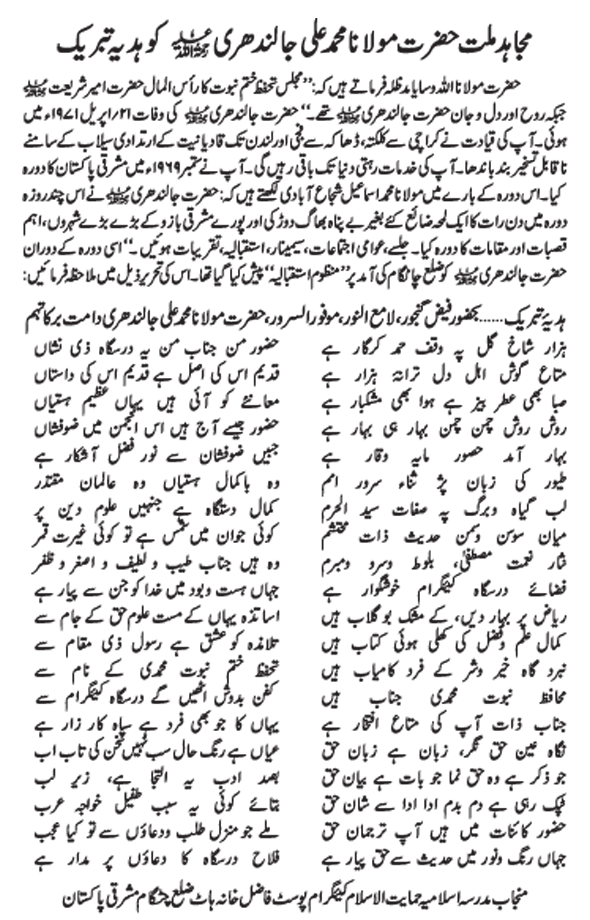 مجاہد ملت حضرت مولانا محمد علی جالندھری رحمۃ اللہ علیہ کو ہدیہ تبریک
حضرت مولانا اللہ وسایا مدظلہ فرماتے ہیں کہ: ”مجلس تحفظ ختم نبوت کا رأس المال حضرت امیر شریعت رحمۃ اللہ علیہ
جبکہ روح اور دل و جان حضرت جالندھری رحمۃ اللہ علیہ تھے۔“ حضرت جالندھری رحمۃ اللہ علیہ کی وفات ۲۱؍اپریل ۱۹۷۱ء میں
ہوئی۔ آپ کی قیادت نے کراچی سے کلکتہ، ڈھاکہ سے فجی اور لندن تک قادیانیت کے ارتدادی سیلاب کے سامنے
ناقابل تسخیر بند باندھا۔ آپ کی خدمات رہتی دنیا تک باقی رہیں گی۔ آپ نے ستمبر ۱۹۶۹ء میں مشرقی پاکستان کا دورہ
کیا۔ اس دورہ کے بارے میں مولانا محمد اسماعیل شجاع آبادی لکھتے ہیں کہ: حضرت جالندھری رحمۃ اللہ علیہ نے اس چند روزہ
دورہ میں دن رات کا ایک لمحہ ضائع کئے بغیر بے پناہ بھاگ دوڑ کی اور پورے مشرقی بازو کے بڑے بڑے شہروں، اہم
قصبات اور مقامات کا دورہ کیا۔ جلسے، عوامی اجتماعات، سیمینار، استقبالیہ، تقریبات ہوئیں۔“ اسی دورہ کے دوران
حضرت جالندھری رحمۃ اللہ علیہ کو ضلع چاٹگام کی آمد پر ”منظوم استقبالیہ“ پیش کیا گیا تھا۔ اس کی تحریر ذیل میں ملاحظہ فرمائیں:
ہدیۂ تبریک......بحضور فیض گنجور، لامع النور، موفور السرور، حضرت مولانا محمد علی جالندھری دامت برکاتہم
ہزار شاخ گل پہ وقف حمد کرگار ہے
متاع گوش اہل دل ترانۂ ہزار ہے
صبا بھی عطر بیز ہے ہوا بھی مشکبار ہے
روش روش چمن چمن بہار ہی بہار ہے
بہار آمد حضور مایہ وقار ہے
طیور کی زبان پڑ ثناء سرور امم
لب گیاہ وبرگ پہ صفات سید الحرم
میان سوسن وسمن حدیث ذات محتشم
نثار نعمت مصطفیٰ، بلوط وسرو ومبرم
فضائے درسگاہ کینگرام خوشگوار ہے
ریاض پر بہار دیں، کے مشک بو گلاب ہیں
کمال علم وفضل کی کھلی ہوئی کتاب ہیں
نبرد گاہ خیر وشر کے فرد کامیاب ہیں
محافظ نبوت محمدی جناب ہیں
جناب ذات آپ کی متاع افتخار ہے
نگاہ عین حق نگر، زبان ہے زبان حق
جو ذکر ہے وہ حق نما جو بات ہے بیان حق
ٹپک رہی ہے دم بدم ادا ادا سے شان حق
حضور کائنات میں ہیں آپ ترجمان حق
جہاں رنگ ونور میں حدیث سے حق پیار ہے
حضور من جناب من یہ درسگاہ ذی نشاں
قدیم اس کی اصل ہے قدیم اس کی داستاں
معائنے کو آئی ہیں یہاں عظیم ہستیاں
حضور جیسے آج ہیں اس انجمن میں ضوفشاں
جبیں ضوفشان سے نور فضل آشکار ہے
وہ باکمال ہستیاں وہ عالمان مقتدر
کمال دستگاہ ہے جنہیں علوم دین پر
کوئی جوان میں شمس ہے تو کوئی غیرت قمر
وہ ہیں جناب طیب و لطیف و اصغر و ظفر
جہاں ہست وبود میں خدا کو جن سے پیار ہے
اساتذہ یہاں کے مست علوم حق کے جام سے
تلامذہ کو عشق ہے رسول ذی مقام سے
تحفظ ختم نبوت محمدی کے نام سے
کفن بدوش اٹھیں گے درسگاہ کینگرام سے
یہاں کا جو بھی فرد ہے سپاہ کار زار ہے
عیاں ہے رنگ حال سب نہیں سخن کی تاب اب
بصد ادب یہ التجا ہے، زیر لب
بتائے کوئی یہ سبب طفیل خواجہ عرب
ملے جو منزل طلب ودعاؤں سے تو کیا عجب
فلاح درسگاہ کا دعاؤں پر مدار ہے
منجاب مدرسہ اسلامیہ حمایت الاسلام کینگرام پوسٹ فاضل خانہ ہاٹ ضلع چٹگام مشرقی پاکستان